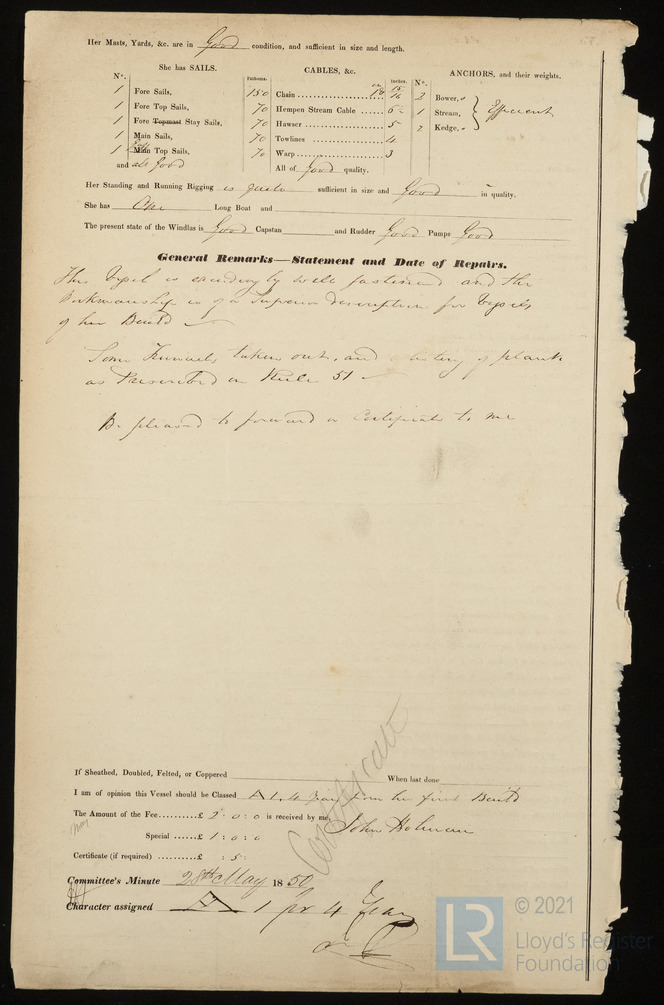 Her Masts, Yards, &c. are in Good condition, and sufficient in size and length.
She has SAILS.
N°.
1 Fore Sails,
1 Fore Top Sails,
1 Fore Topmast Stay Sails,
1 Main Sails,
1 Main Top Sails,
and all Good
Fathoms. CABLES, &c. Inches.
150 Chain 15/16
70 Hempen Stream Cable 6
70 Hawser 5
70 Towlines 4
70 Warp 3
All of Good quality.
N°. ANCHORS, and their weights.
2 Bower,
1 Stream, Efficient
2 Kedge,
Her Standing and Running Rigging is quite sufficient in size and Good in quality.
She has One Long Boat and
The present state of the Windlas is Good Capstan and Rudder Good Pumps Good
General Remarks—Statement and Date of Repairs.
This Vessel is exceedingly well fastened and the
Workmanship is of a Superior description for Vessels
of her Build
Some Trunnels taken out, and a listing of plank
as Prescribed in Rule 51
Be pleased to forward a Certificate to me
If Sheathed, Doubled, Felted, or Coppered When last done
I am of opinion this Vessel should be Classed A 1. 4 Years from her first Build
The Amount of the Fee £ 2 : 0 : 0 is received by me, John Holman
Special £ 1 : 0 : 0
Certificate (if required) £ : 5 :
Certificate
Committee's Minute 28th May 1850
Character assigned A 1 for 4 Years
LR © 2021
Lloyd's Register
Foundation